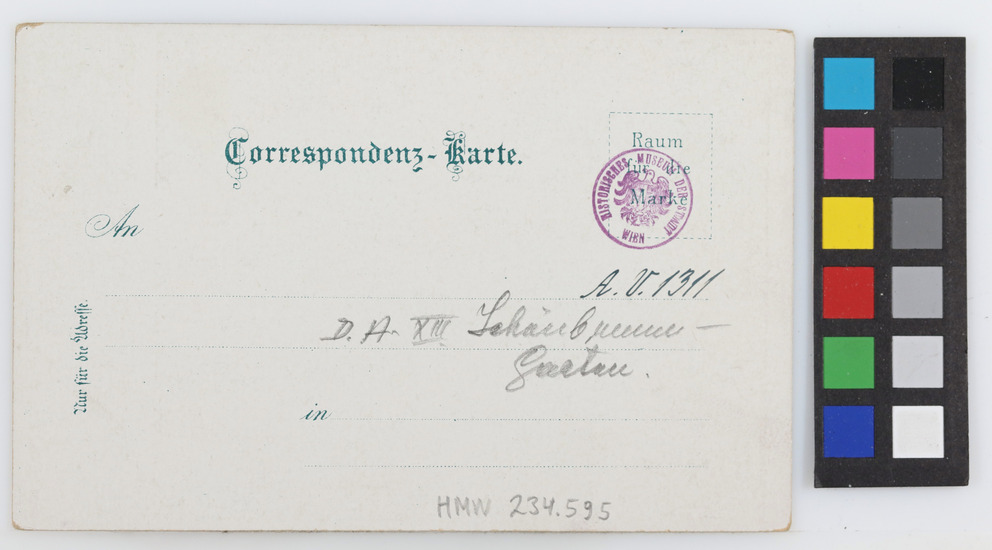 Correspondenz-Karte.
Raum
für die
Marke
HISTORISCHES MUSEUM DER STADT
WIEN
An
A. V. 1311
D. A. XIII Schönbrunn-
Garten.
Nur für die Adresse.
in
HMW 234.595